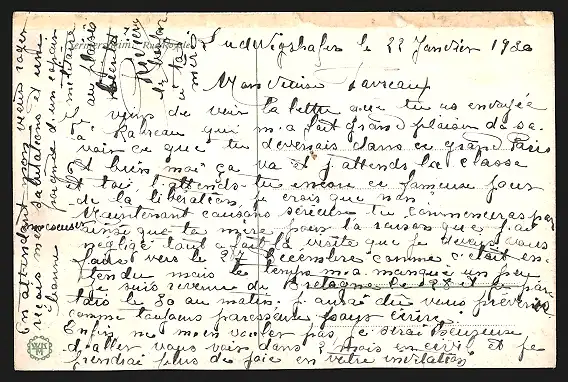 Ludwigshafen le 22 Janvier 1920
Mon vieux
viens de voir la lettre que tu as envoyée
à qui m'a fait grand plaisir de sa-
voir ce que tu devenais dans ce grand Paris
Et bien moi ça va et j'attends la classe
Et toi l'attends-tu encore ce fameux jour
de la libération je crois que non
Maintenant causons sérieux tu commenceras par
m'excuser ainsi que ta mère pour la raison que j'ai
négligé tout a fait la visite que je devais vous
faire vers le 27 Décembre comme c'était en-
tendu mais le temps m'a manqué un peu
je suis revenu de Bretagne le 28 et je par-
tais le 30 au matin j'aurai du vous prévenir
comme toujours paresseux pour écrire.
Enfin ne m'en vouler pas je serai
d'aller vous voir dans 2 mois en civil et je
prendrai plus de joie en votre invitation
En attendant mon vieux
reçois mes salutations et une
poignée d'un copain
militaire
au plaisir